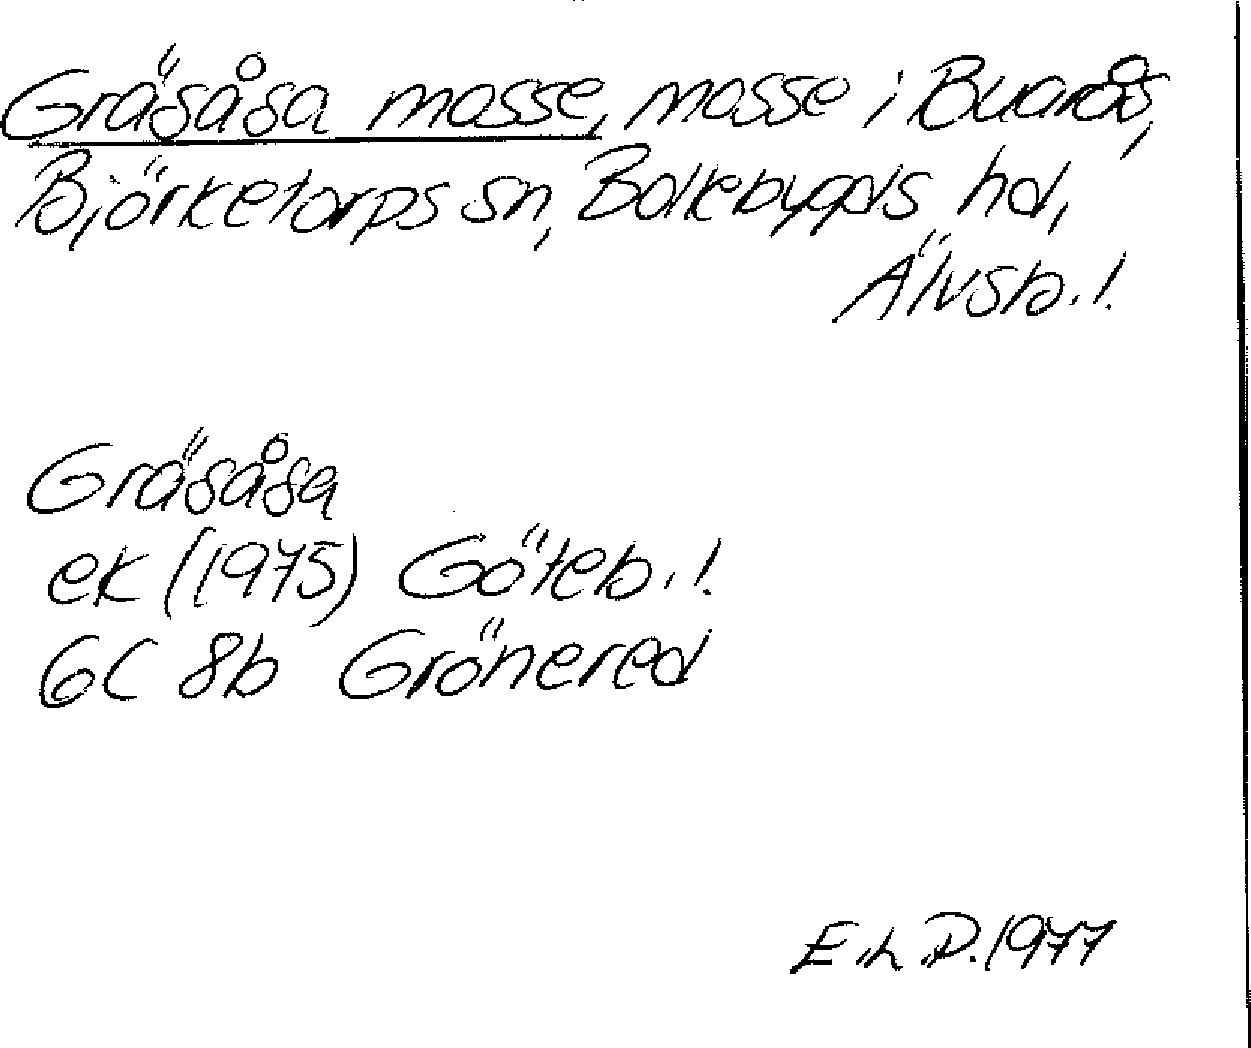 Gräsåsa mosse, mosse i Buarås,
Björketorps sn, Bollebygds hd,
Älvsb. l.
Gräsåsa
ek (1975) Göteb. l.
6C 8b Grönered
1977